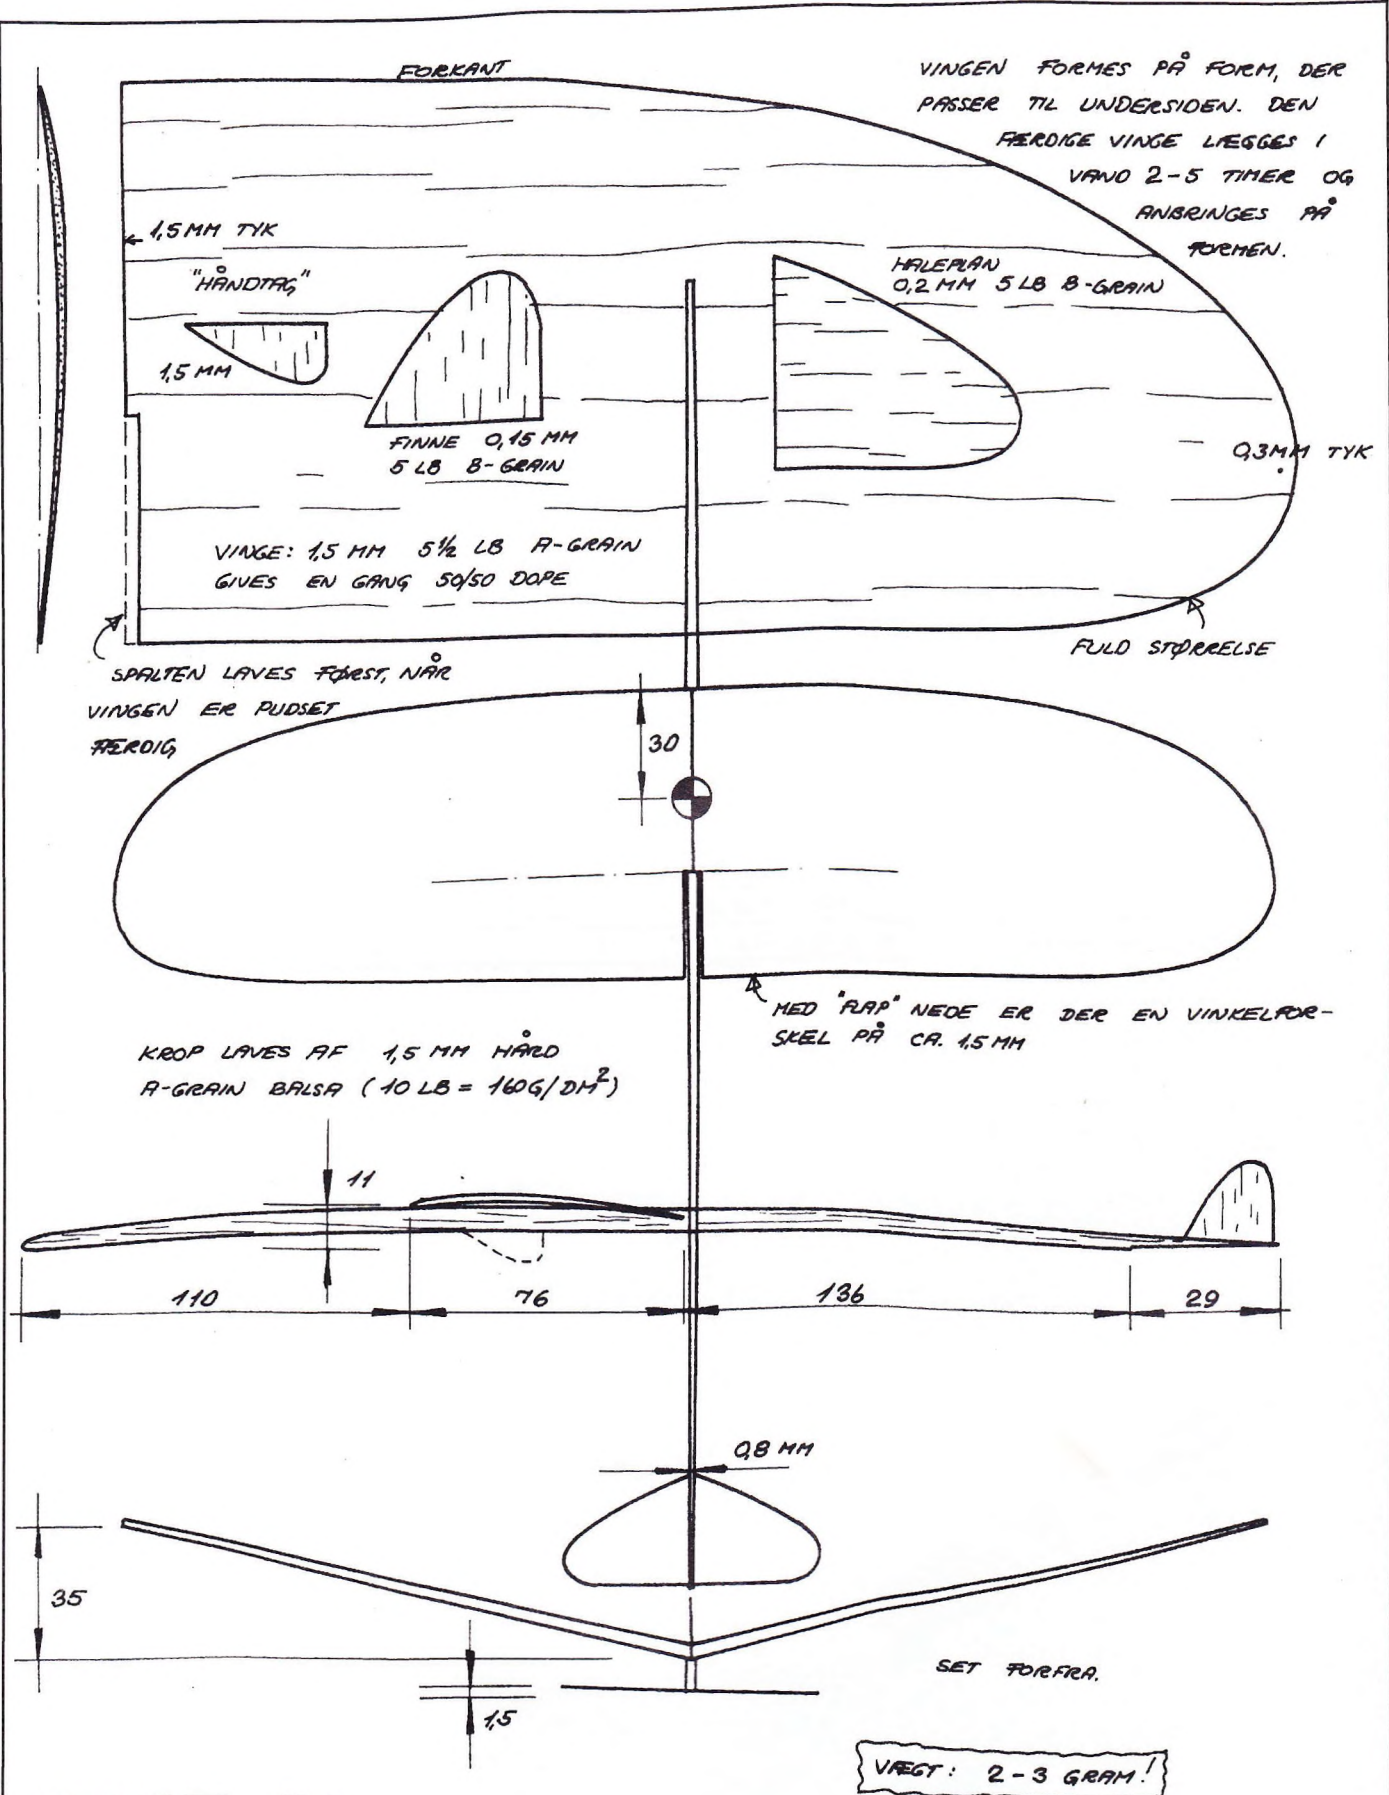 FORKANT
VINGEN FORMES PÅ FORM, DER
PASSER TIL UNDERSIDEN. DEN
FÆRDIGE VINGE LÆGGES I
VAND 2-5 TIMER OG
ANBRINGES PÅ
FORMEN.
1,5 MM TYK
"HÅNDTAG"
1,5 MM
HALEPLAN
0,2 MM 5 LB B-GRAIN
FINNE 0,15 MM
5 LB B-GRAIN
0,3MM TYK
VINGE: 1,5 MM 5½ LB A-GRAIN
GIVES EN GANG 50/50 DOPE
FULD STØRRELSE
SPALTEN LAVES FØRST, NÅR
VINGEN ER PUDSET
FÆRDIG
30
MED "FLAP" NEDE ER DER EN VINKELFOR-
SKEL PÅ CA. 1,5 MM
KROP LAVES AF 1,5 MM HÅRD
A-GRAIN BALSA (10 LB = 160G/DM²)
11
110
76
136
29
0,8 MM
35
1,5
SET FORFRA.
VÆGT: 2-3 GRAM!